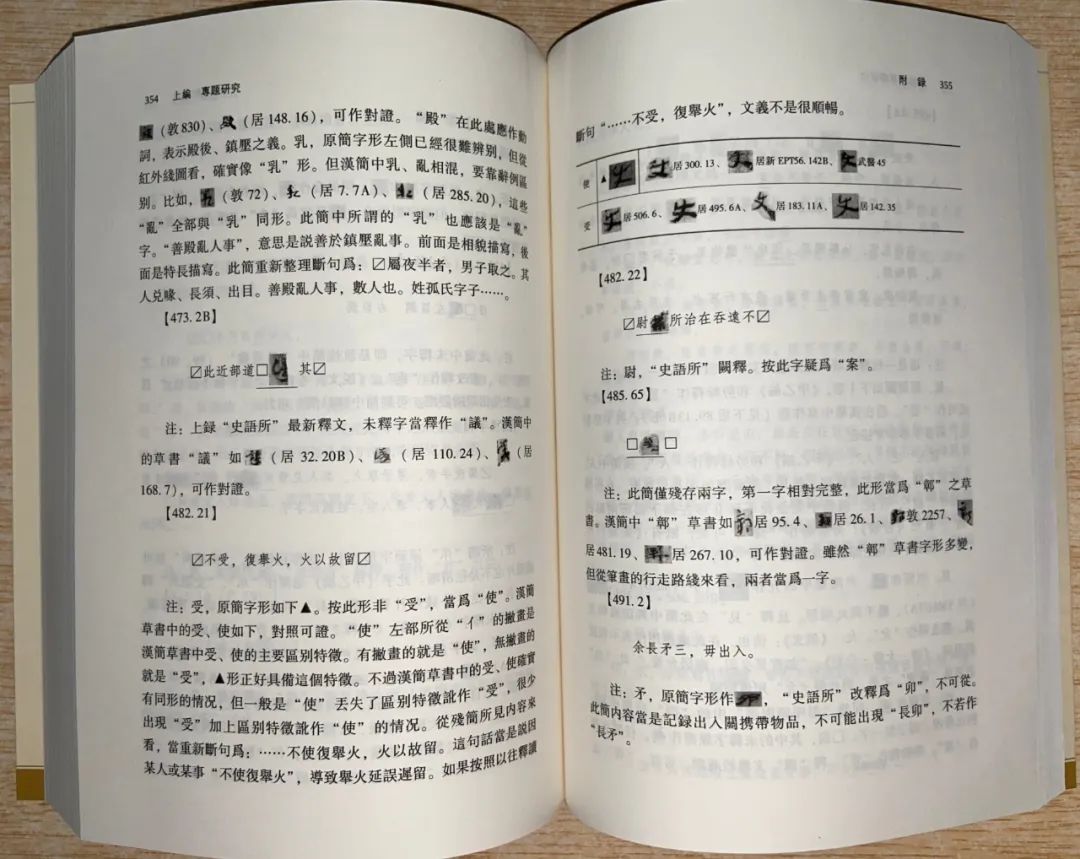 354 上編 專題研究
(敦830)、(居148.16)，可作對證。“殿”在此處應作動
詞，表示殿後、鎮壓之義。乳，原簡字形左側已經很難辨别，但從
紅外綫圖看，確實像“乳”形。但漢簡中乳、亂相混，要靠辭例區
别。比如，(敦72)、(居7.7A)、(居285.20)，這些
“亂”全部與“乳”同形。此簡中所謂的“乳”也應該是“亂”
字。“善殿亂人事”，意思是説善於鎮壓亂事。前面是相貌描寫，後
面是特長描寫。此簡重新整理斷句爲：☑屬夜半者，男子取之。其
人兑喙、長須、出目。善殿亂人事，數人也。姓孤氏字子……。
【473.2B】
☑此近部道□ 其☑
注：上録“史語所”最新釋文，未釋字當釋作“議”。漢簡中
的草書“議”如(居32.20B)、(居110.24)、(居
168.7)，可作對證。
【482.21】
☑不受，復舉火，火以故留☑
注：受，原簡字形如下▲。按此形非“受”，當爲“使”。漢簡
草書中的受、使如下，對照可證。“使”左部所從“亻”的撇畫是
漢簡草書中受、使的主要區别特徵。有撇畫的就是“使”，無撇畫的
就是“受”，▲形正好具備這個特徵。不過漢簡草書中的受、使確實
有同形的情况，但一般是“使”丟失了區别特徵訛作“受”，很少
出現“受”加上區别特徵訛作“使”的情况。從殘簡所見内容來
看，當重新斷句爲：……不使復舉火，火以故留。這句話當是説因
某人或某事“不使復舉火”，導致舉火延誤遲留。如果按照以往釋讀
附録 355
斷句“……不受，復舉火”，文義不是很順暢。
使 ▲ 居300.13、居新EPT56.142B、武醫45
受 居506.6、居495.6A、居183.11A、居142.35
【482.22】
☑尉 所治在吞遠不☑
注：尉，“史語所”闕釋。按此字疑爲“案”。
【485.65】
□ □
注：此簡僅殘存兩字，第一字相對完整，此形當爲“鄣”之草
書。漢簡中“鄣”草書如居95.4、居26.1、敦2257、
居481.19、居267.10，可作對證。雖然“鄣”草書字形多變，
但從筆畫的行走路綫來看，兩者當爲一字。
【491.2】
余長矛三，毋出入。
注：矛，原簡字形作，“史語所”改釋爲“卯”，不可從。
此簡内容當是記録出入關携帶物品，不可能出現“長卯”，不若作
“長矛”。